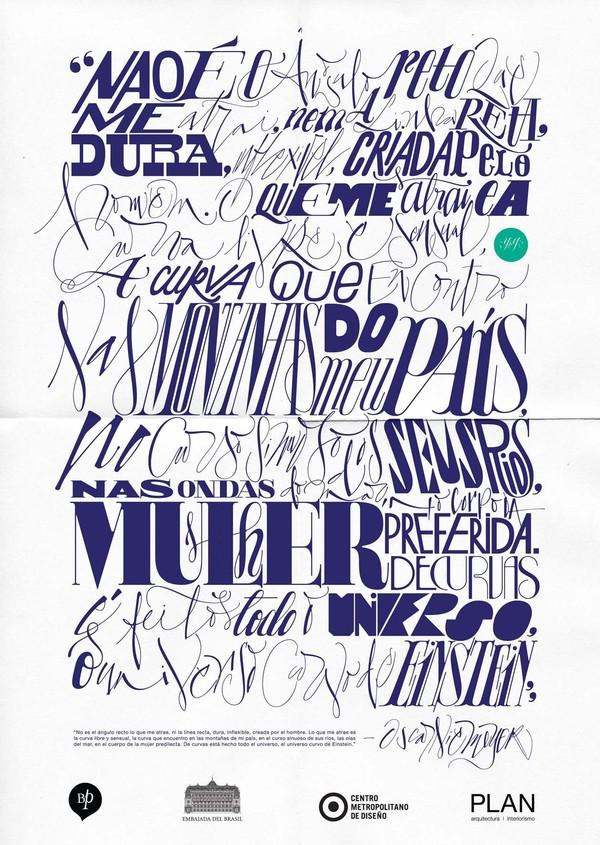 “NÃO É O Ângulo reto Que
ME atrai, nem A Linha RETA,
DURA, inflexível, CRIADA PELO
homem. O QUE ME atrai É A
Curva livre e sensual,
A CURVA QUE Encontro
nas MONTANHAS DO meu PAÍS,
no Curso sinuoso dos SEUS RIOS,
NAS ONDAS do mar, no corpo DA
MULHER PREFERIDA.
DE CURVAS
é feito todo o UNIVERSO,
O universo Curvo de EINSTEIN,”
- Oscar Niemeyer
"No es el ángulo recto lo que me atrae, ni la línea recta, dura, inflexible, creada por el hombre. Lo que me atrae es
la curva libre y sensual, la curva que encuentro en las montañas de mi país, en el curso sinuoso de sus ríos, las olas
del mar, en el cuerpo de la mujer predilecta. De curvas está hecho todo el universo, el universo curvo de Einstein."
Bp
EMBAJADA DEL BRASIL
CENTRO
METROPOLITANO
DE DISEÑO
PLAN
arquitectura | interiorismo